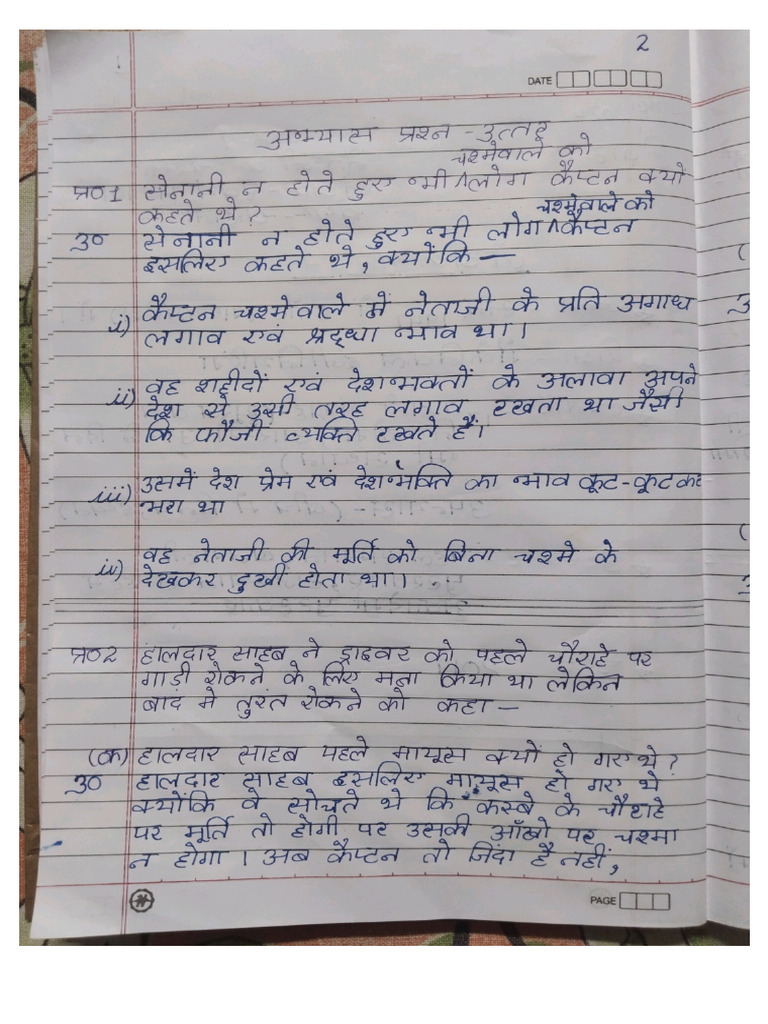 2
DATE
अभ्यास प्रश्न-उत्तर
चश्मेवाले को
प्र०1 सेनानी न होते हुए भी ^ लोग कैप्टन क्यों
कहते थे?
चश्मेवाले को
उ० सेनानी न होते हुए भी लोग ^ कैप्टन
इसलिए कहते थे, क्योंकि —
i) कैप्टन चश्मेवाले में नेताजी के प्रति अगाध
लगाव एवं श्रद्धा भाव था।
ii) वह शहीदों एवं देशभक्तों के अलावा अपने
देश से उसी तरह लगाव रखता था जैसी
कि फौजी व्यक्ति रखते हैं।
iii) उसमें देश प्रेम एवं देशभक्ति का भाव कूट-कूट कर
भरा था
iv) वह नेताजी की मूर्ति को बिना चश्मे के
देखकर दुखी होता था।
प्र०2 हालदार साहब ने ड्राइवर को पहले चौराहे पर
गाड़ी रोकने के लिए मना किया था लेकिन
बाद मे तुरंत रोकने को कहा —
(क) हालदार साहब पहले मायूस क्यों हो गए थे?
उ० हालदार साहब इसलिए मायूस हो गए थे
क्योंकि वे सोचते थे कि कस्बे के चौराहे
पर मूर्ति तो होगी पर उसकी आँखो पर चश्मा
न होगा। अब कैप्टन तो जिंदा है नहीं,
PAGE